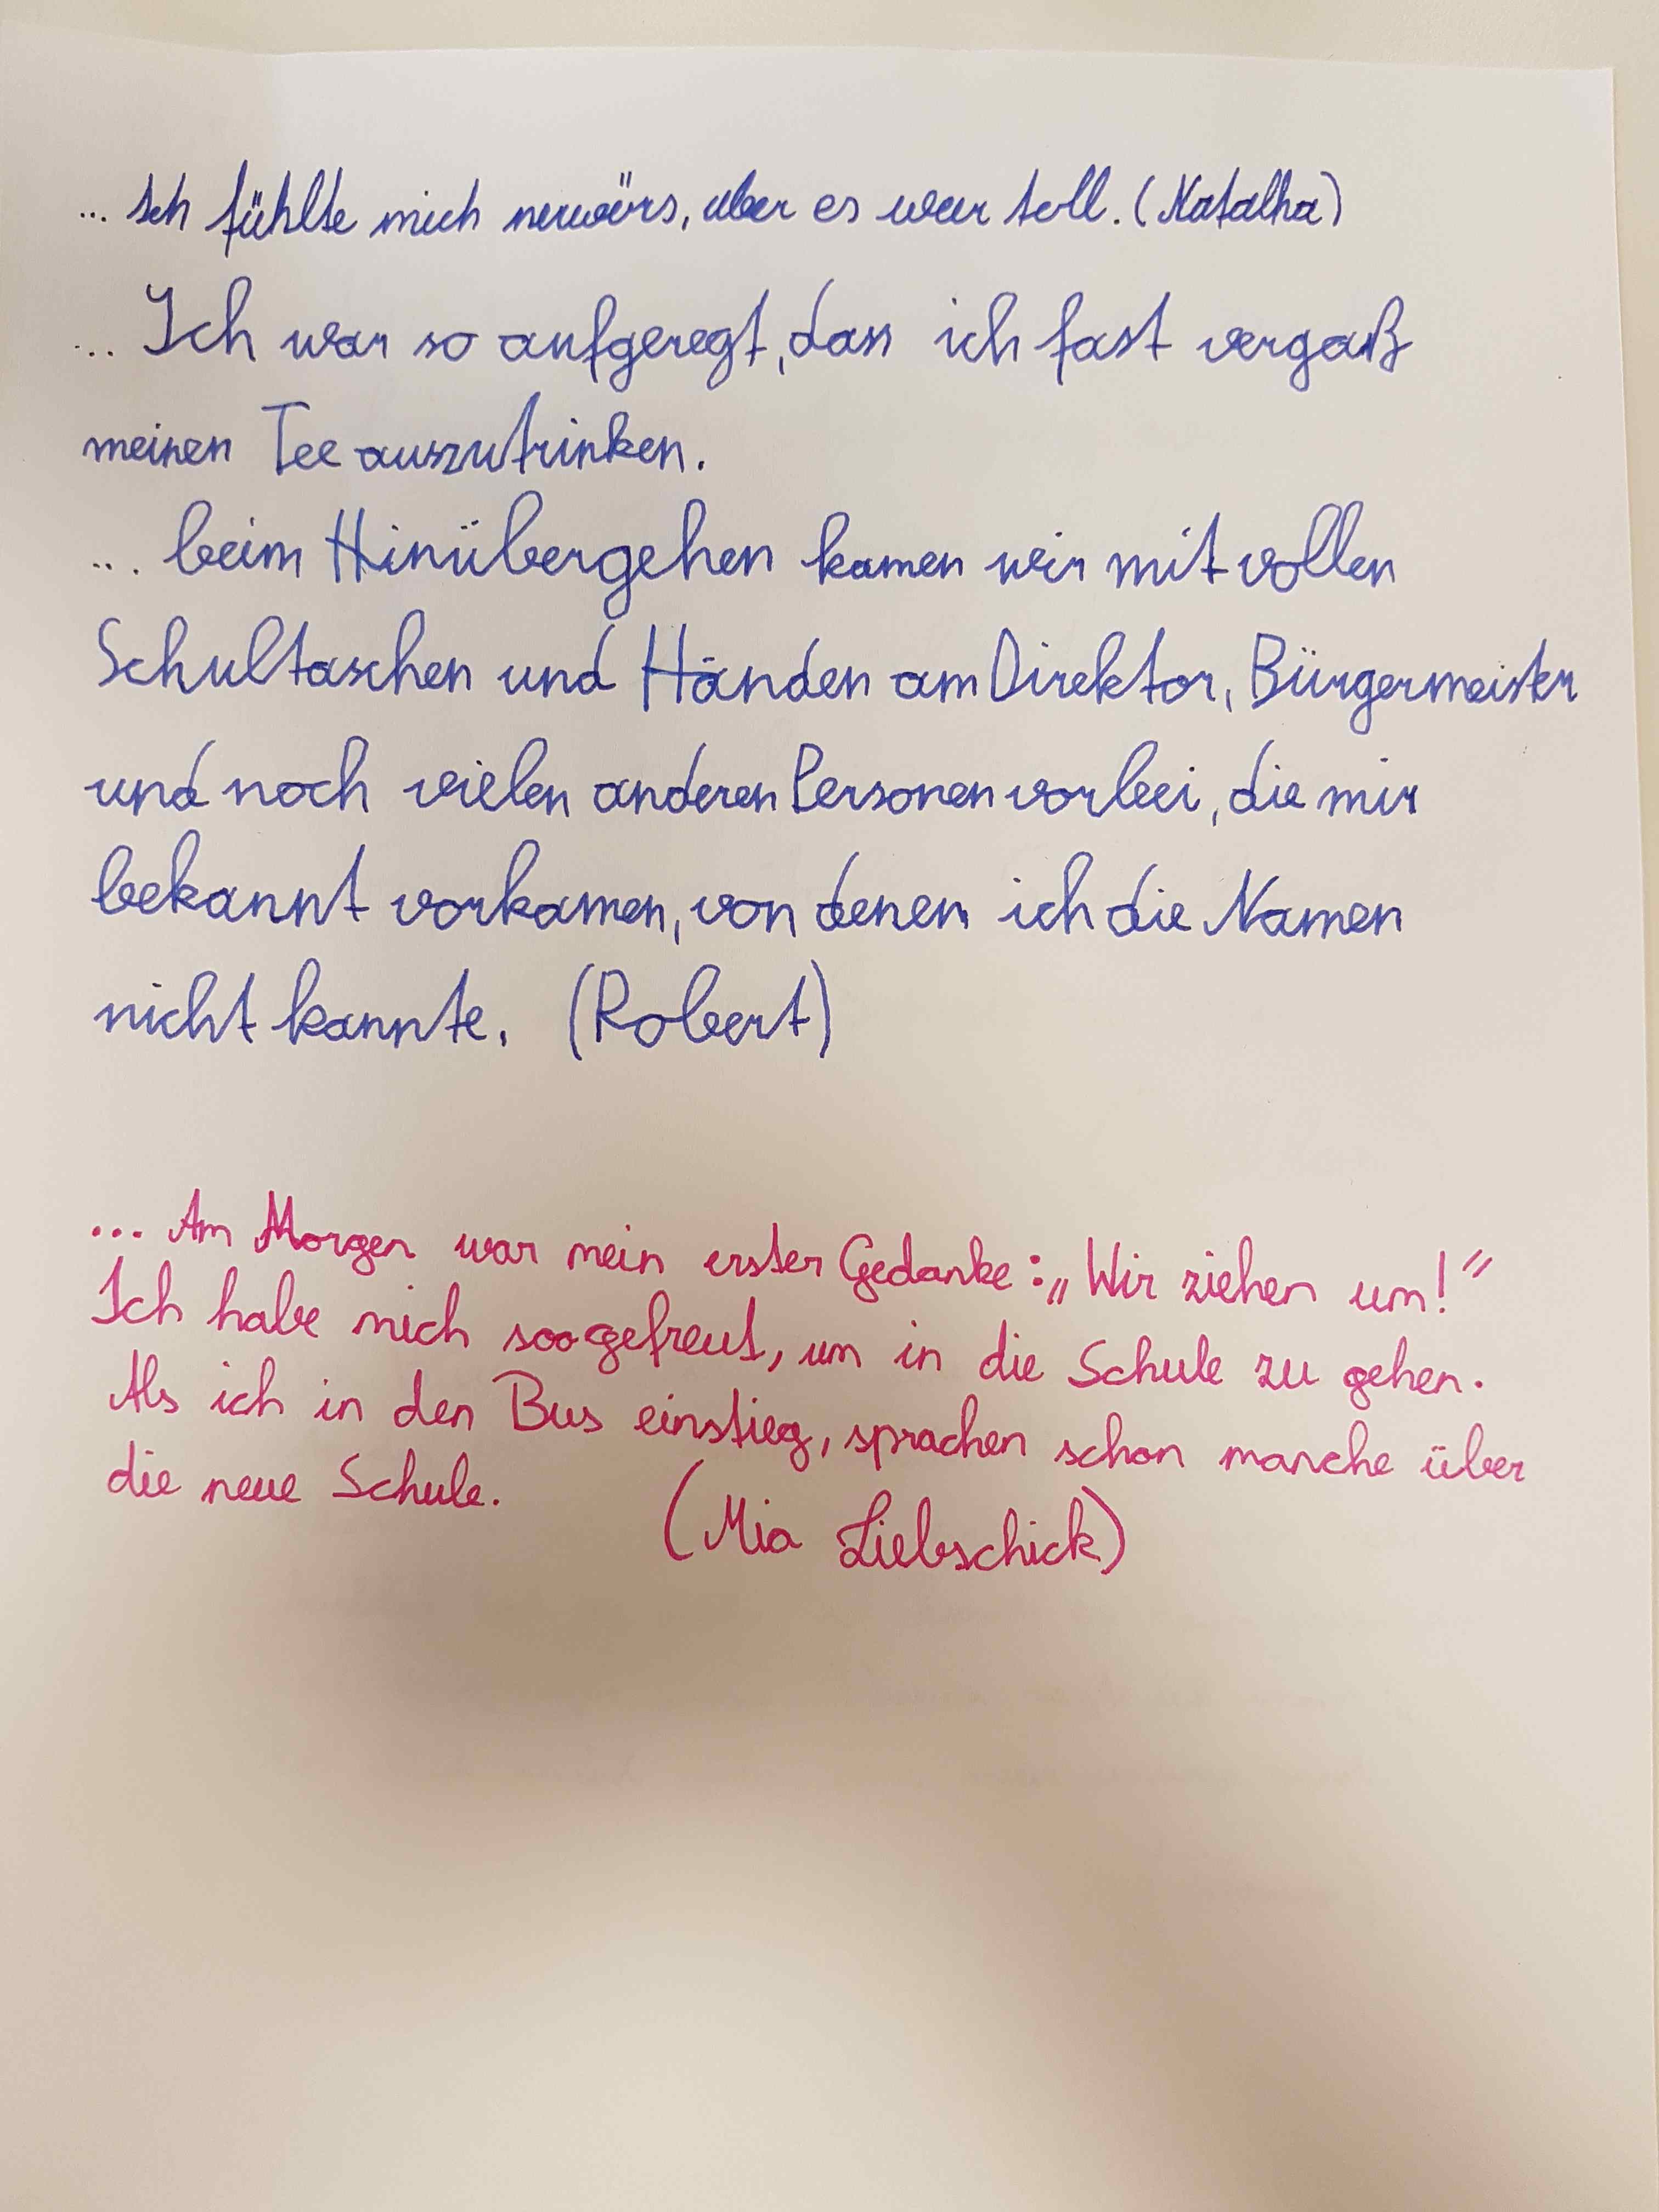 ... Ich fühlte mich nerwörs, aber es war toll. (Natalha)
... Ich war so aufgeregt, dass ich fast vergaß
meinen Tee auszutrinken.
... beim Hinübergehen kamen wir mit vollen
Schultaschen und Händen am Direktor, Bürgermeister
und noch vielen anderen Personen vorbei, die mir
bekannt vorkamen, von denen ich die Namen
nicht kannte. (Robert)
... Am Morgen war mein erster Gedanke: „Wir ziehen um!“
Ich habe mich soo gefreut, um in die Schule zu gehen.
Als ich in den Bus einstieg, sprachen schon manche über
die neue Schule.
(Mia Liebschick)